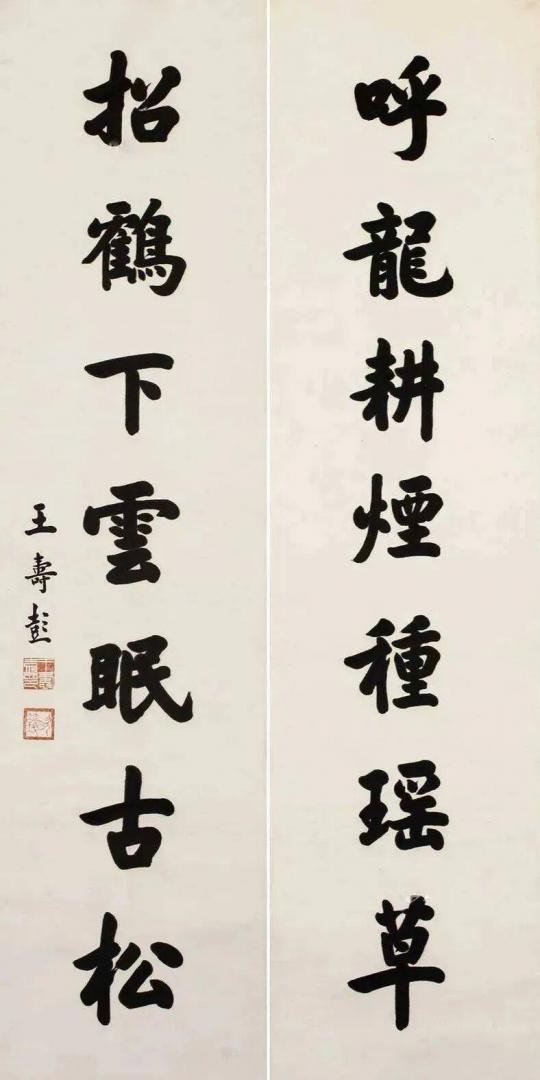 呼龍耕煙種瑶草
招鶴下雲眠古松
王壽彭